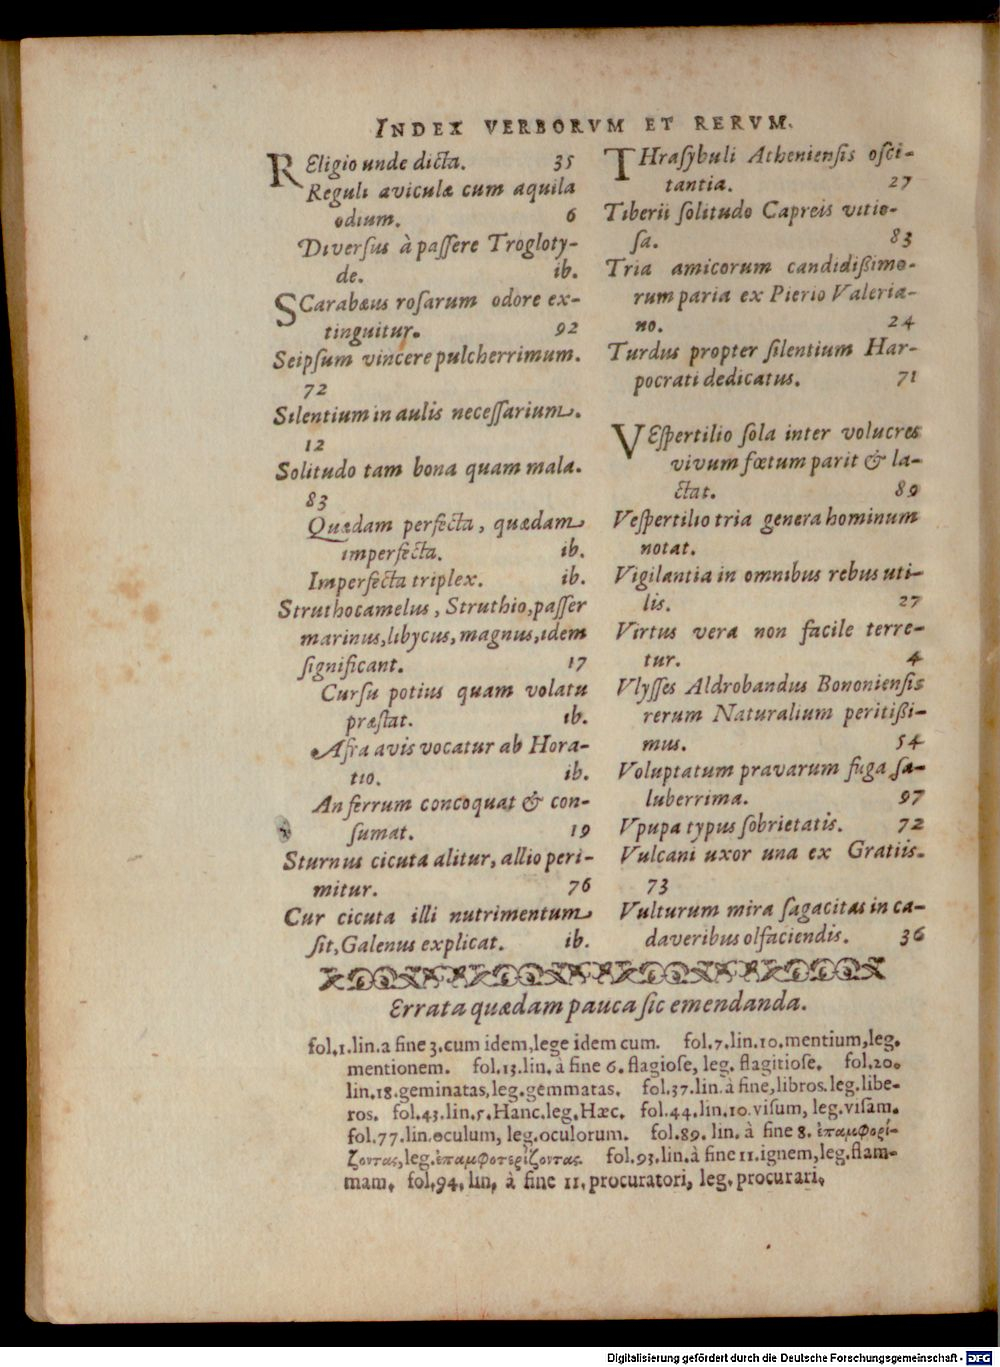 INDEX VERBORVM ET RERVM.
REligio unde dicta. 35
Reguli aviculæ cum aquila
odium. 6
Diversus à passere Trogloty-
de. ib.
SCarabæus rosarum odore ex-
tinguitur. 92
Seipsum vincere pulcherrimum.
72
Silentium in aulis necessarium.
12
Solitudo tam bona quam mala.
83
Quædam perfecta, quædam
imperfecta. ib.
Imperfecta triplex. ib.
Struthocamelus, Struthio, passer
marinus, libycus, magnus, idem
significant. 17
Cursu potius quam volatu
præstat. ib.
Afra avis vocatur ab Hora-
tio. ib.
An ferrum concoquat & con-
sumat. 19
Sturnus cicuta alitur, allio peri-
mitur. 76
Cur cicuta illi nutrimentum
sit, Galenus explicat. ib.
THrasybuli Atheniensis osci-
tantia. 27
Tiberii solitudo Capreis vitio-
sa. 83
Tria amicorum candidißimo-
rum paria ex Pierio Valeria-
no. 24
Turdus propter silentium Har-
pocrati dedicatus. 71
VEspertilio sola inter volucres
vivum fœtum parit & la-
ctat. 89
Vespertilio tria genera hominum
notat.
Vigilantia in omnibus rebus uti-
lis. 27
Virtus vera non facile terre-
tur. 4
Vlysses Aldrobandus Bononiensis
rerum Naturalium peritißi-
mus. 54
Voluptatum pravarum fuga sa-
luberrima. 97
Vpupa typus sobrietatis. 72
Vulcani uxor una ex Gratiis.
73
Vulturum mira sagacitas in ca-
daveribus olfaciendis. 36
Errata quædam pauca sic emendanda.
fol.1.lin.a fine 3.cum idem,lege idem cum. fol.7.lin.10.mentium,leg.
mentionem. fol.13.lin.à fine 6.flagiose, leg. flagitiose. fol.20.
lin.18.geminatas,leg.gemmatas. fol.37.lin.à fine,libros.leg.libe-
ros. fol.43.lin.5.Hanc.leg.Hæc. fol.44.lin.10.visum, leg.visam.
fol.77.lin.oculum, leg.oculorum. fol.89. lin. à fine 8. ἐπαμφορί-
ζοντας,leg.ἐπαμφοτερίζοντας. fol.93.lin.à fine 11.ignem,leg.flam-
mam. fol.94.lin. à fine 11.procuratori, leg.procurari.
Digitalisierung gefördert durch die Deutsche Forschungsgemeinschaft - DFG